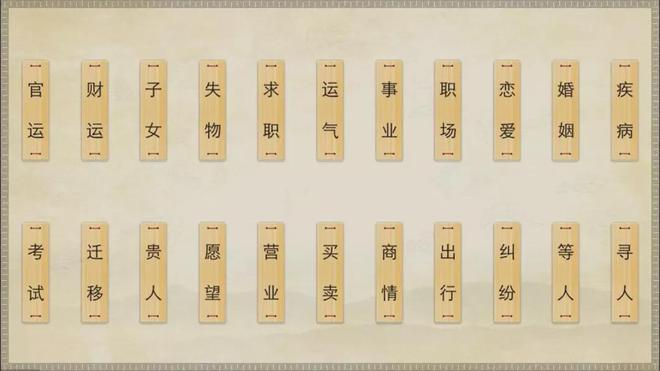 官运
财运
子女
失物
求职
运气
事业
职场
恋爱
婚姻
疾病
考试
迁移
贵人
愿望
营业
买卖
商情
出行
纠纷
等人
寻人